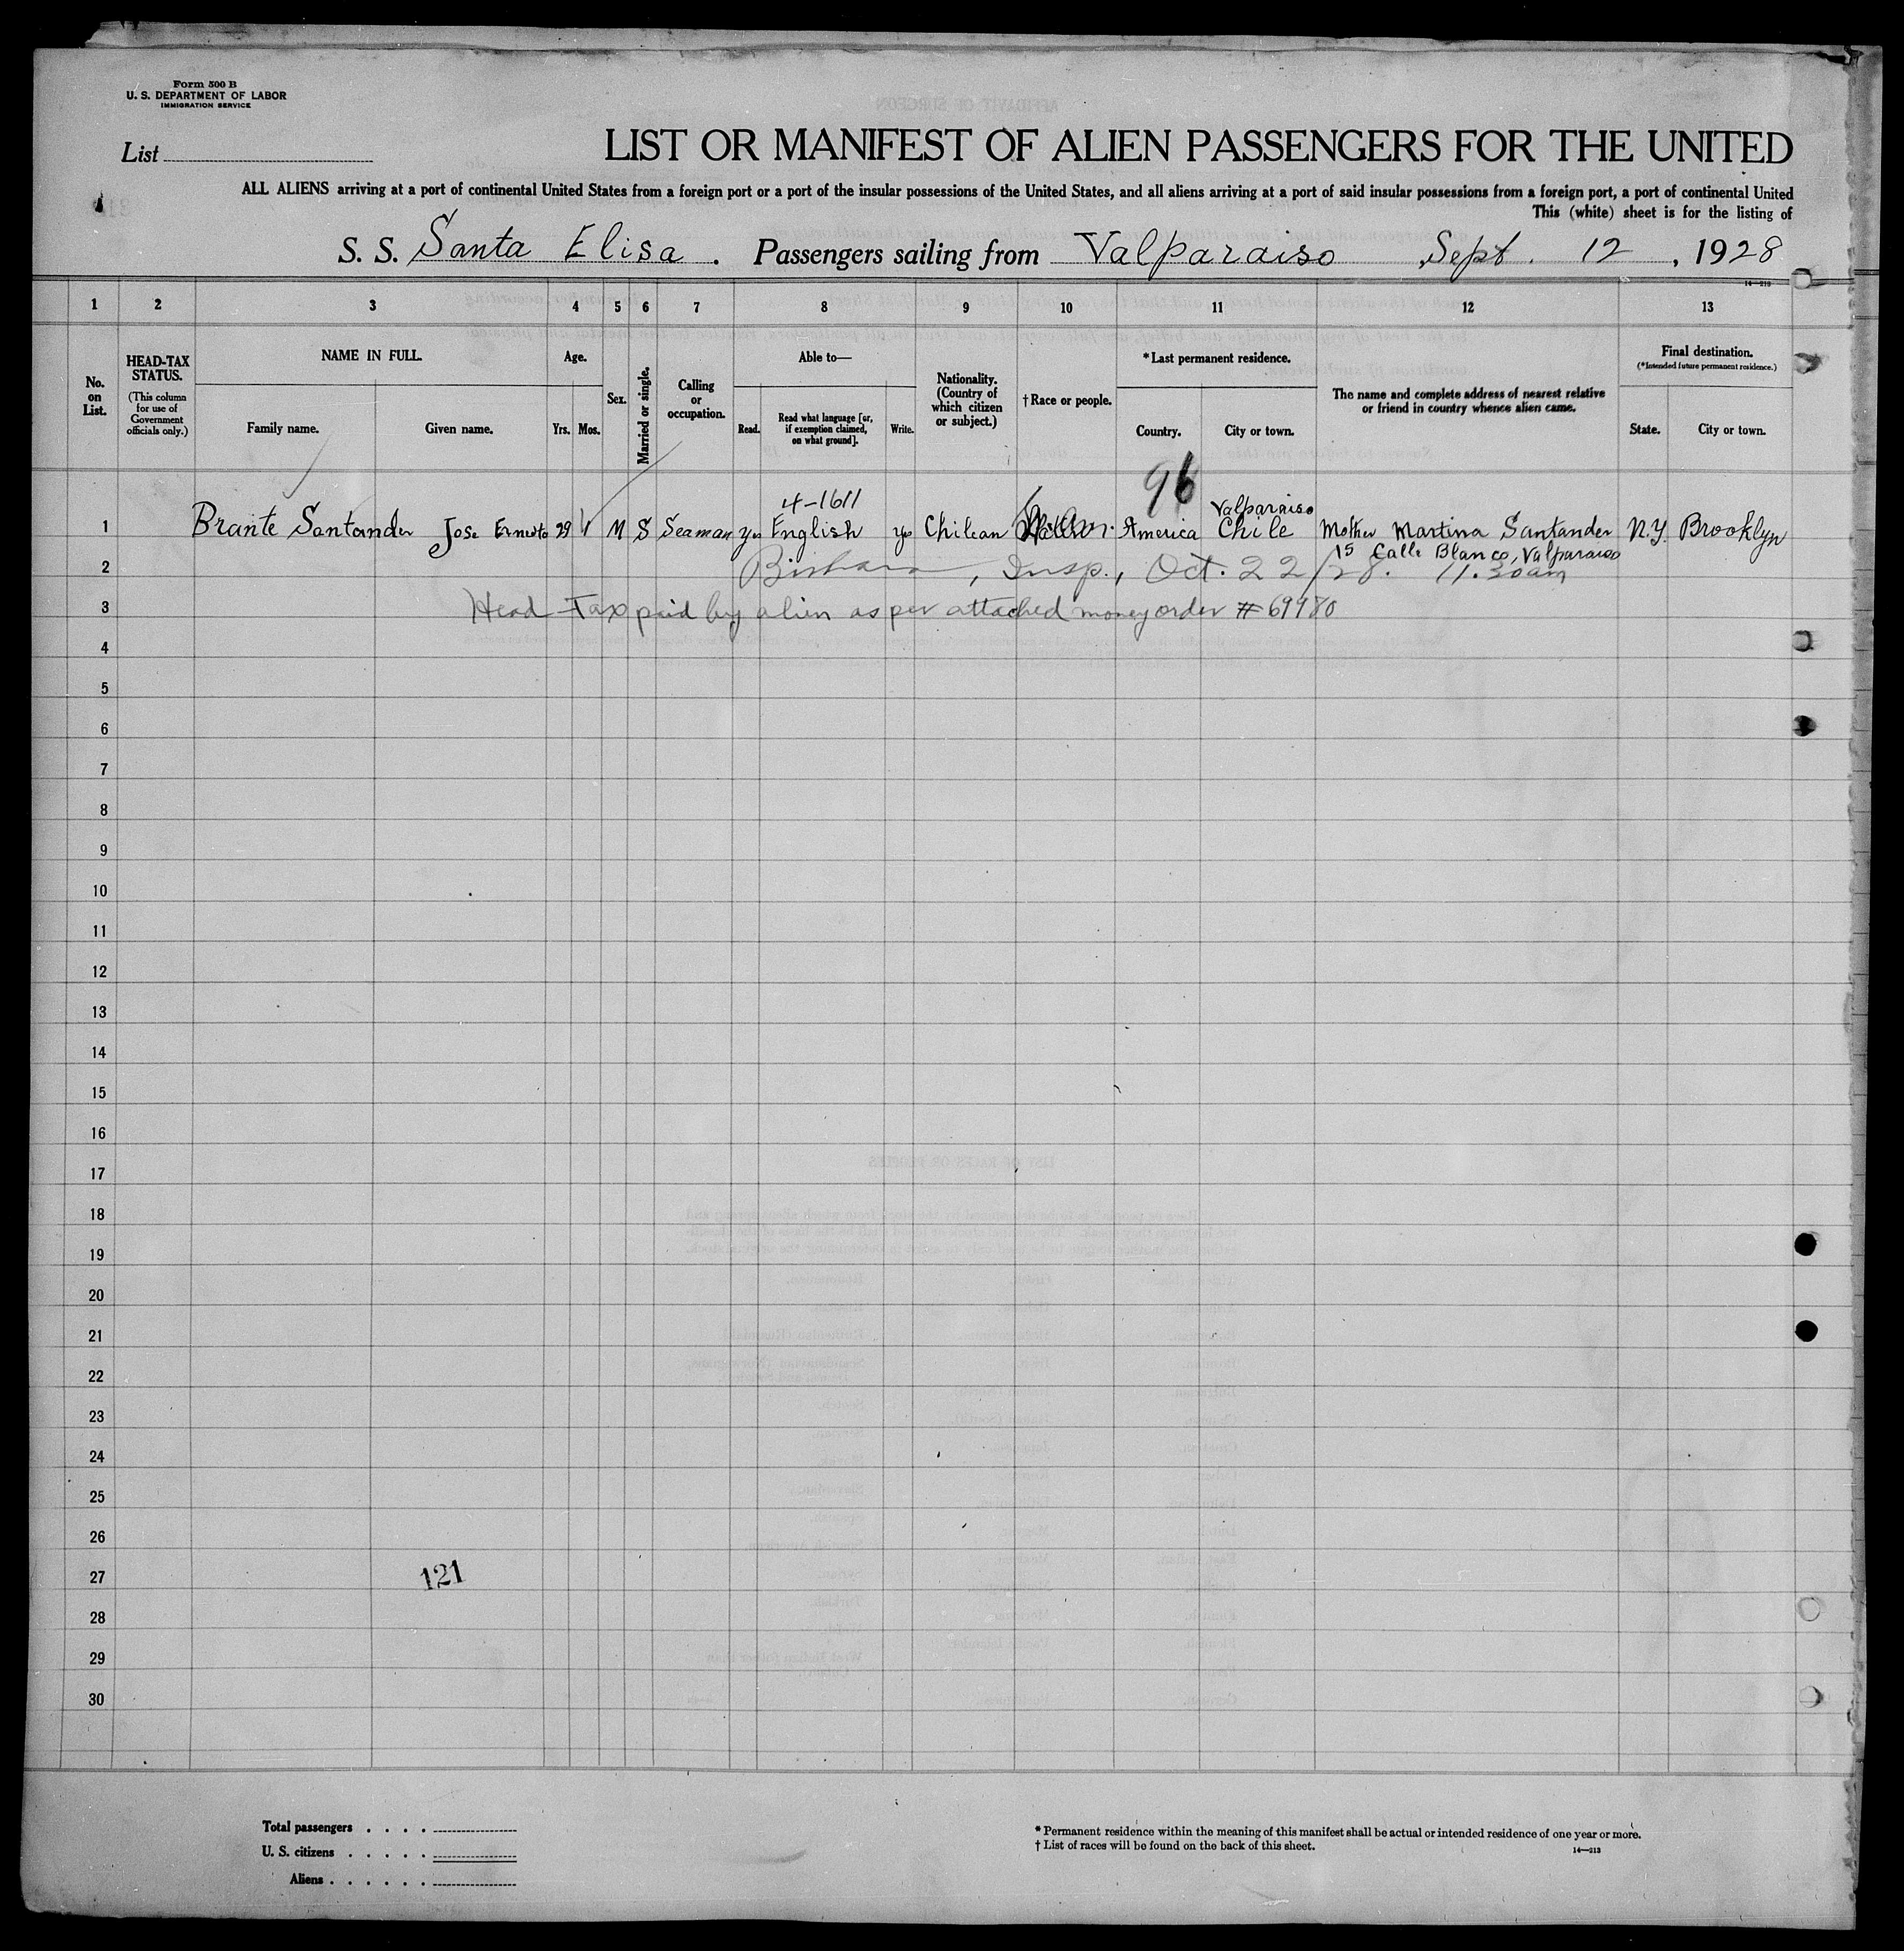 Form 500 B
U. S. DEPARTMENT OF LABOR
IMMIGRATION SERVICE
List
LIST OR MANIFEST OF ALIEN PASSENGERS FOR THE UNITED
ALL ALIENS arriving at a port of continental United States from a foreign port or a port of the insular possessions of the United States, and all aliens arriving at a port of said insular possessions from a foreign port, a port of continental United
This (white) sheet is for the listing of
S. S. Santa Elisa. Passengers sailing from Valparaiso, Sept. 12, 1928
14—213
1 2 3 4 5 6 7 8 9 10 11 12 13
No. on List.
HEAD-TAX STATUS.
(This column for use of Government officials only.)
NAME IN FULL.
Family name. Given name.
Age.
Yrs. Mos.
Sex.
Married or single.
Calling or occupation.
Able to—
Read. Read what language [or, if exemption claimed, on what ground]. Write.
Nationality. (Country of which citizen or subject.)
†Race or people.
*Last permanent residence.
Country. City or town.
The name and complete address of nearest relative or friend in country whence alien came.
Final destination.
(*Intended future permanent residence.)
State. City or town.
96
4-1611
Valparaiso
1 Brante Santander Jose Ernesto 29 M S Seaman yes English yes Chilean America Chile Mother Martina Santander N.Y. Brooklyn
15 Calle Blanco, Valparaiso
2 , Insp., Oct. 22/28. 11.30am
3 Head Tax paid by alien as per attached money order # 69980
4
5
6
7
8
9
10
11
12
13
14
15
16
17
18
19
20
21
22
23
24
25
26
27 121
28
29
30
Total passengers
U. S. citizens
Aliens
* Permanent residence within the meaning of this manifest shall be actual or intended residence of one year or more.
† List of races will be found on the back of this sheet.
14—213